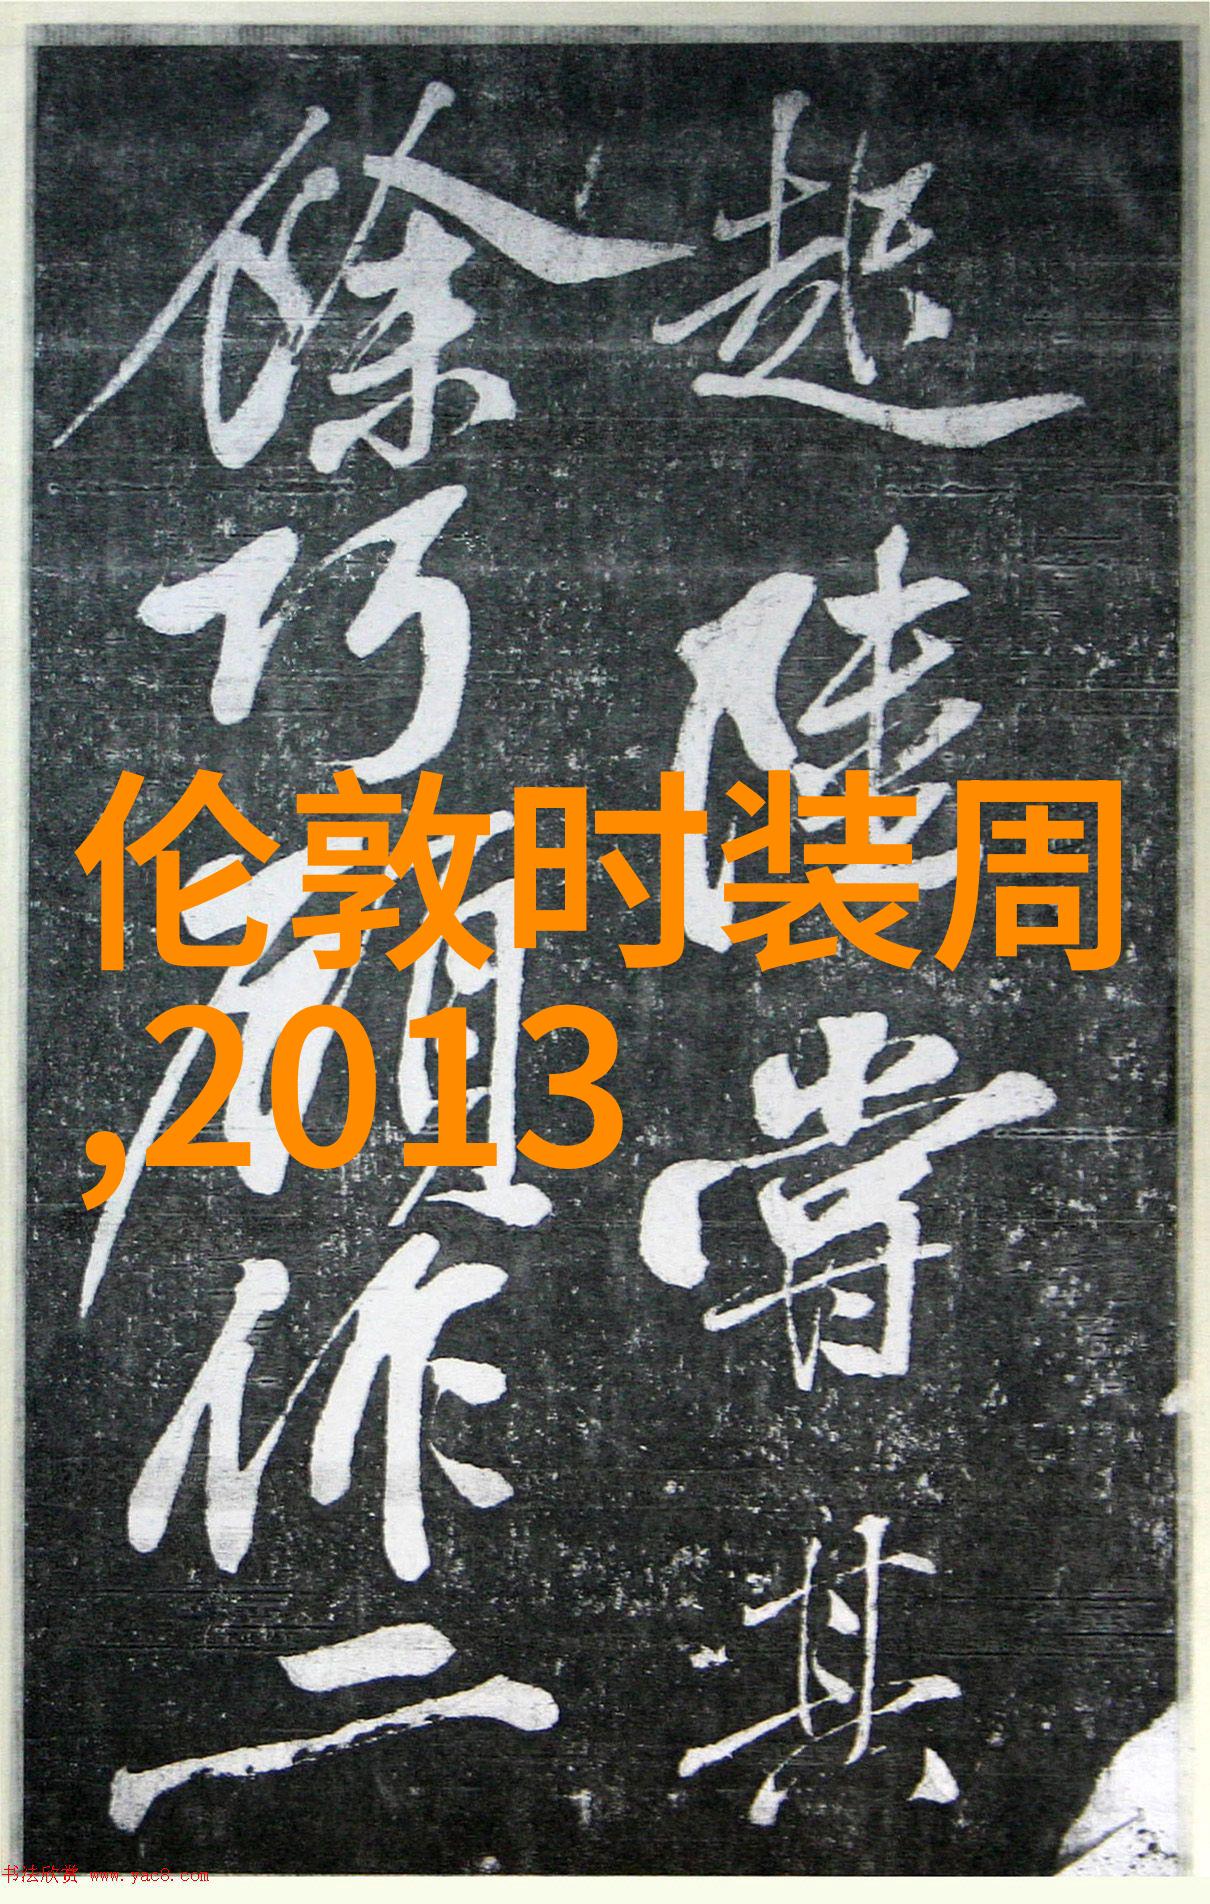 起陸嘗其
餘巧顧作二
伦敦时装周
,2013
书法欣赏 www.yac8.com